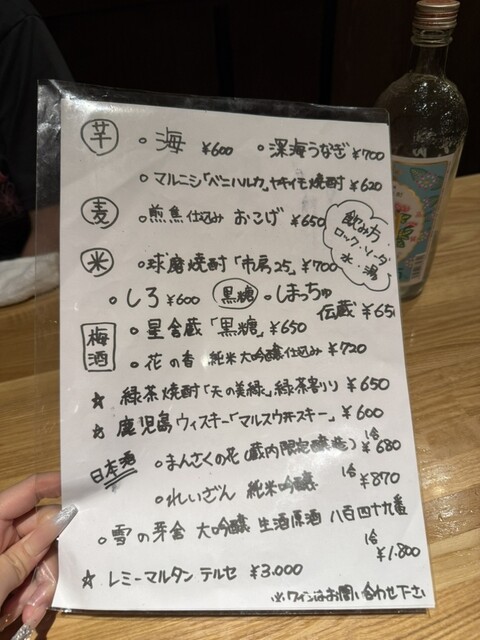 芋 ○海 ¥600 ○深海うなぎ ¥700
○マルニシ「ベニハルカ」ヤキイモ焼酎 ¥620
麦 ○煎麦仕込み おこげ ¥650
飲み方
ロック・ソーダ
水・湯
米 ○球磨焼酎「市房25」¥700
○しろ ¥600 黒糖 ○しまっちゅ
伝蔵 ¥65
梅酒 ○星舎蔵「黒糖」¥650
○花の香 純米大吟醸仕込み ¥720
☆ 緑茶焼酎「天の美緑」緑茶割り ¥650
☆ 鹿児島ウィスキー「マルスウヰスキー」¥600
日本酒 ○まんさくの花(蔵内限定醸造) 1合 ¥680
○れいざん 純米吟醸 1合 ¥870
○雪の茅舎 大吟醸 生酒原酒 八百四十九番
1合 ¥1.800
☆ レミーマルタン テルセ ¥3.000
※ワインはお問い合わせ下さい